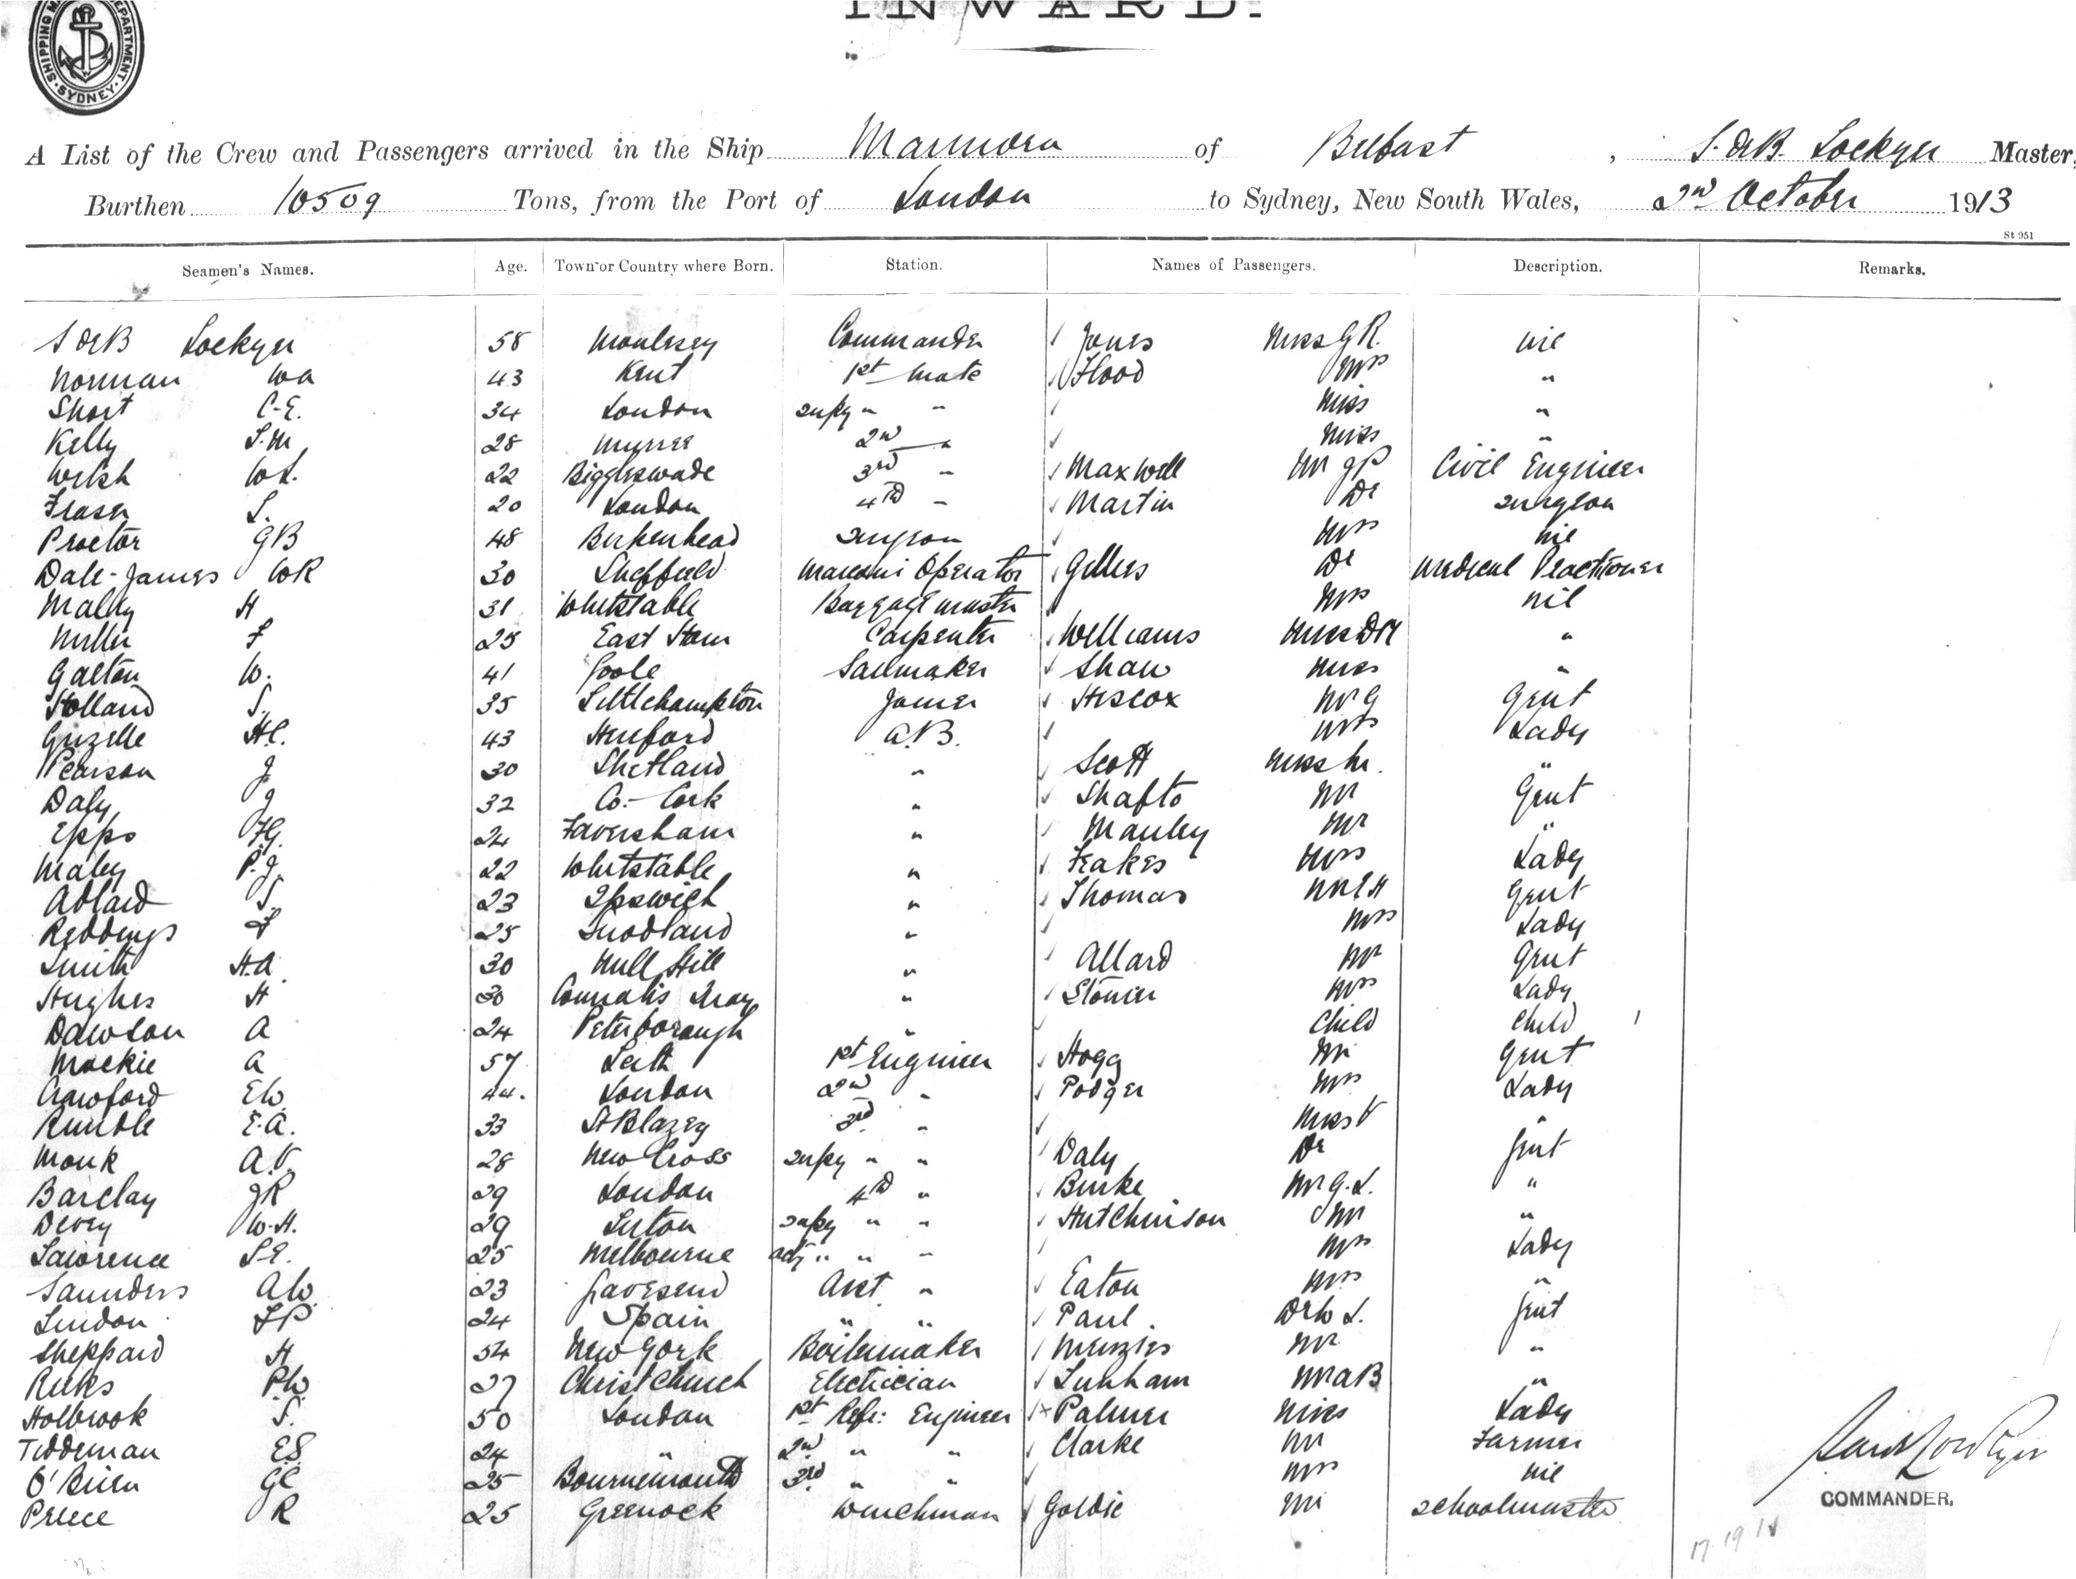 SHIPPING M DEPARTMENT SYDNEY
INWARD.
A List of the Crew and Passengers arrived in the Ship Marmora of Belfast, S. deB. Lockyer Master,
Burthen 10509 Tons, from the Port of London to Sydney, New South Wales, 2nd October 1913
St 951
Seamen's Names. Age. Town or Country where Born. Station. Names of Passengers. Description. Remarks.
S deB Lockyer 58 Commander Jones Miss G R. nil
Norman WA 43 Kent 1st Mate Flood Mrs "
Short C.E. 34 London supy " " Miss "
Kelly S.M 28 Murree 2nd " Miss "
Welsh WL. 22 Biggleswade 3rd " Maxwell Mr JP Civil Engineer
Fraser S. 20 London 4th " Martin Dr Surgeon
Proctor GB 48 Birkenhead Surgeon Mrs nil
Dale-James WR 30 Sheffield Marconi Operator Gillies Dr Medical Practioner
Maley H 31 Whitstable Baggage master Mrs nil
Miller F 25 East Ham Carpenter Williams Miss DM "
Galton W. 41 Goole Sailmaker Shaw Miss "
Holland S. 35 Littlehampton Joiner Hiscox Mr G Gent
Grizelle HC. 43 Hereford A.B. Mrs Lady
Pearson J 30 Shetland " Scott Miss M. "
Daly J 32 Co. Cork " Shafto Mr Gent
Epps HG. 24 Faversham " Manley Mr "
Maley P.J. 22 Whitstable " Feakes Mrs Lady
Adlard S. 23 Ipswich " Thomas Mr E H Gent
Reddings F 25 Snodland " Mrs Lady
Smith H.A 30 Mill Hill " Allard Mr Gent
Hughes H 30 Connahs Quay " Stonier Mrs Lady
Dawson A 24 Peterborough " Child Child
Mackie A 57 Leith 1st Engineer Hogg Mr Gent
Crawford EW 44. London 2nd " Podger Mrs Lady
Rumble E.A. 33 St Blazey 3rd " Miss V "
Monk A.V. 28 New Cross supy " " Daly Dr Gent
Barclay JR 29 London 4th " Burke Mr G.L. "
Devey W.H. 29 Luton supy " " Hutchinson Mr "
Lawrence S.E. 25 Melbourne " " " Mrs Lady
Saunders AW 23 Gravesend Asst " Eaton Mrs "
Lindon FP 24 Spain " " Paul Dr W L. Gent
Sheppard H 54 New York Boilermaker Menzies Mr "
Ricks PW 27 Christchurch Electrician Mr AB "
Holbrook S. 50 London 1st Refr: Engineer Palmer Miss Lady
Tiddeman ES 24 " 2nd " " Clarke Mr Farmer
O'Brien GC 25 Bournemouth 3rd " " Mrs nil
Preece R 25 Greenock Winchman Goldie Mr Schoolmaster
COMMANDER.